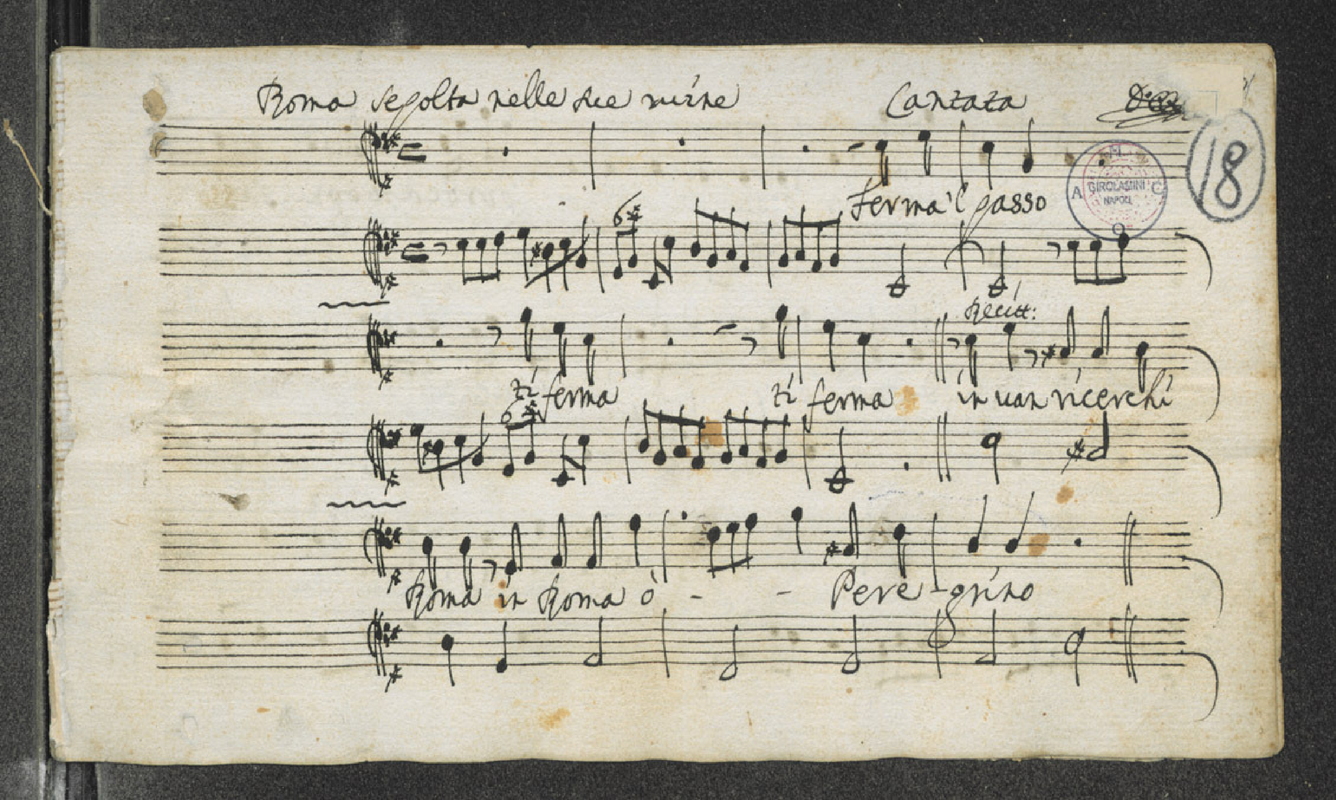 Roma sepolta nelle sue ruine Cantata
18
A M. C O
GIROLAMINI
NAPOLI
ferma'l passo
6
Recitt:
ti ferma ti ferma in uan ricerchi
6
Roma in Roma ò - - Pere-grino